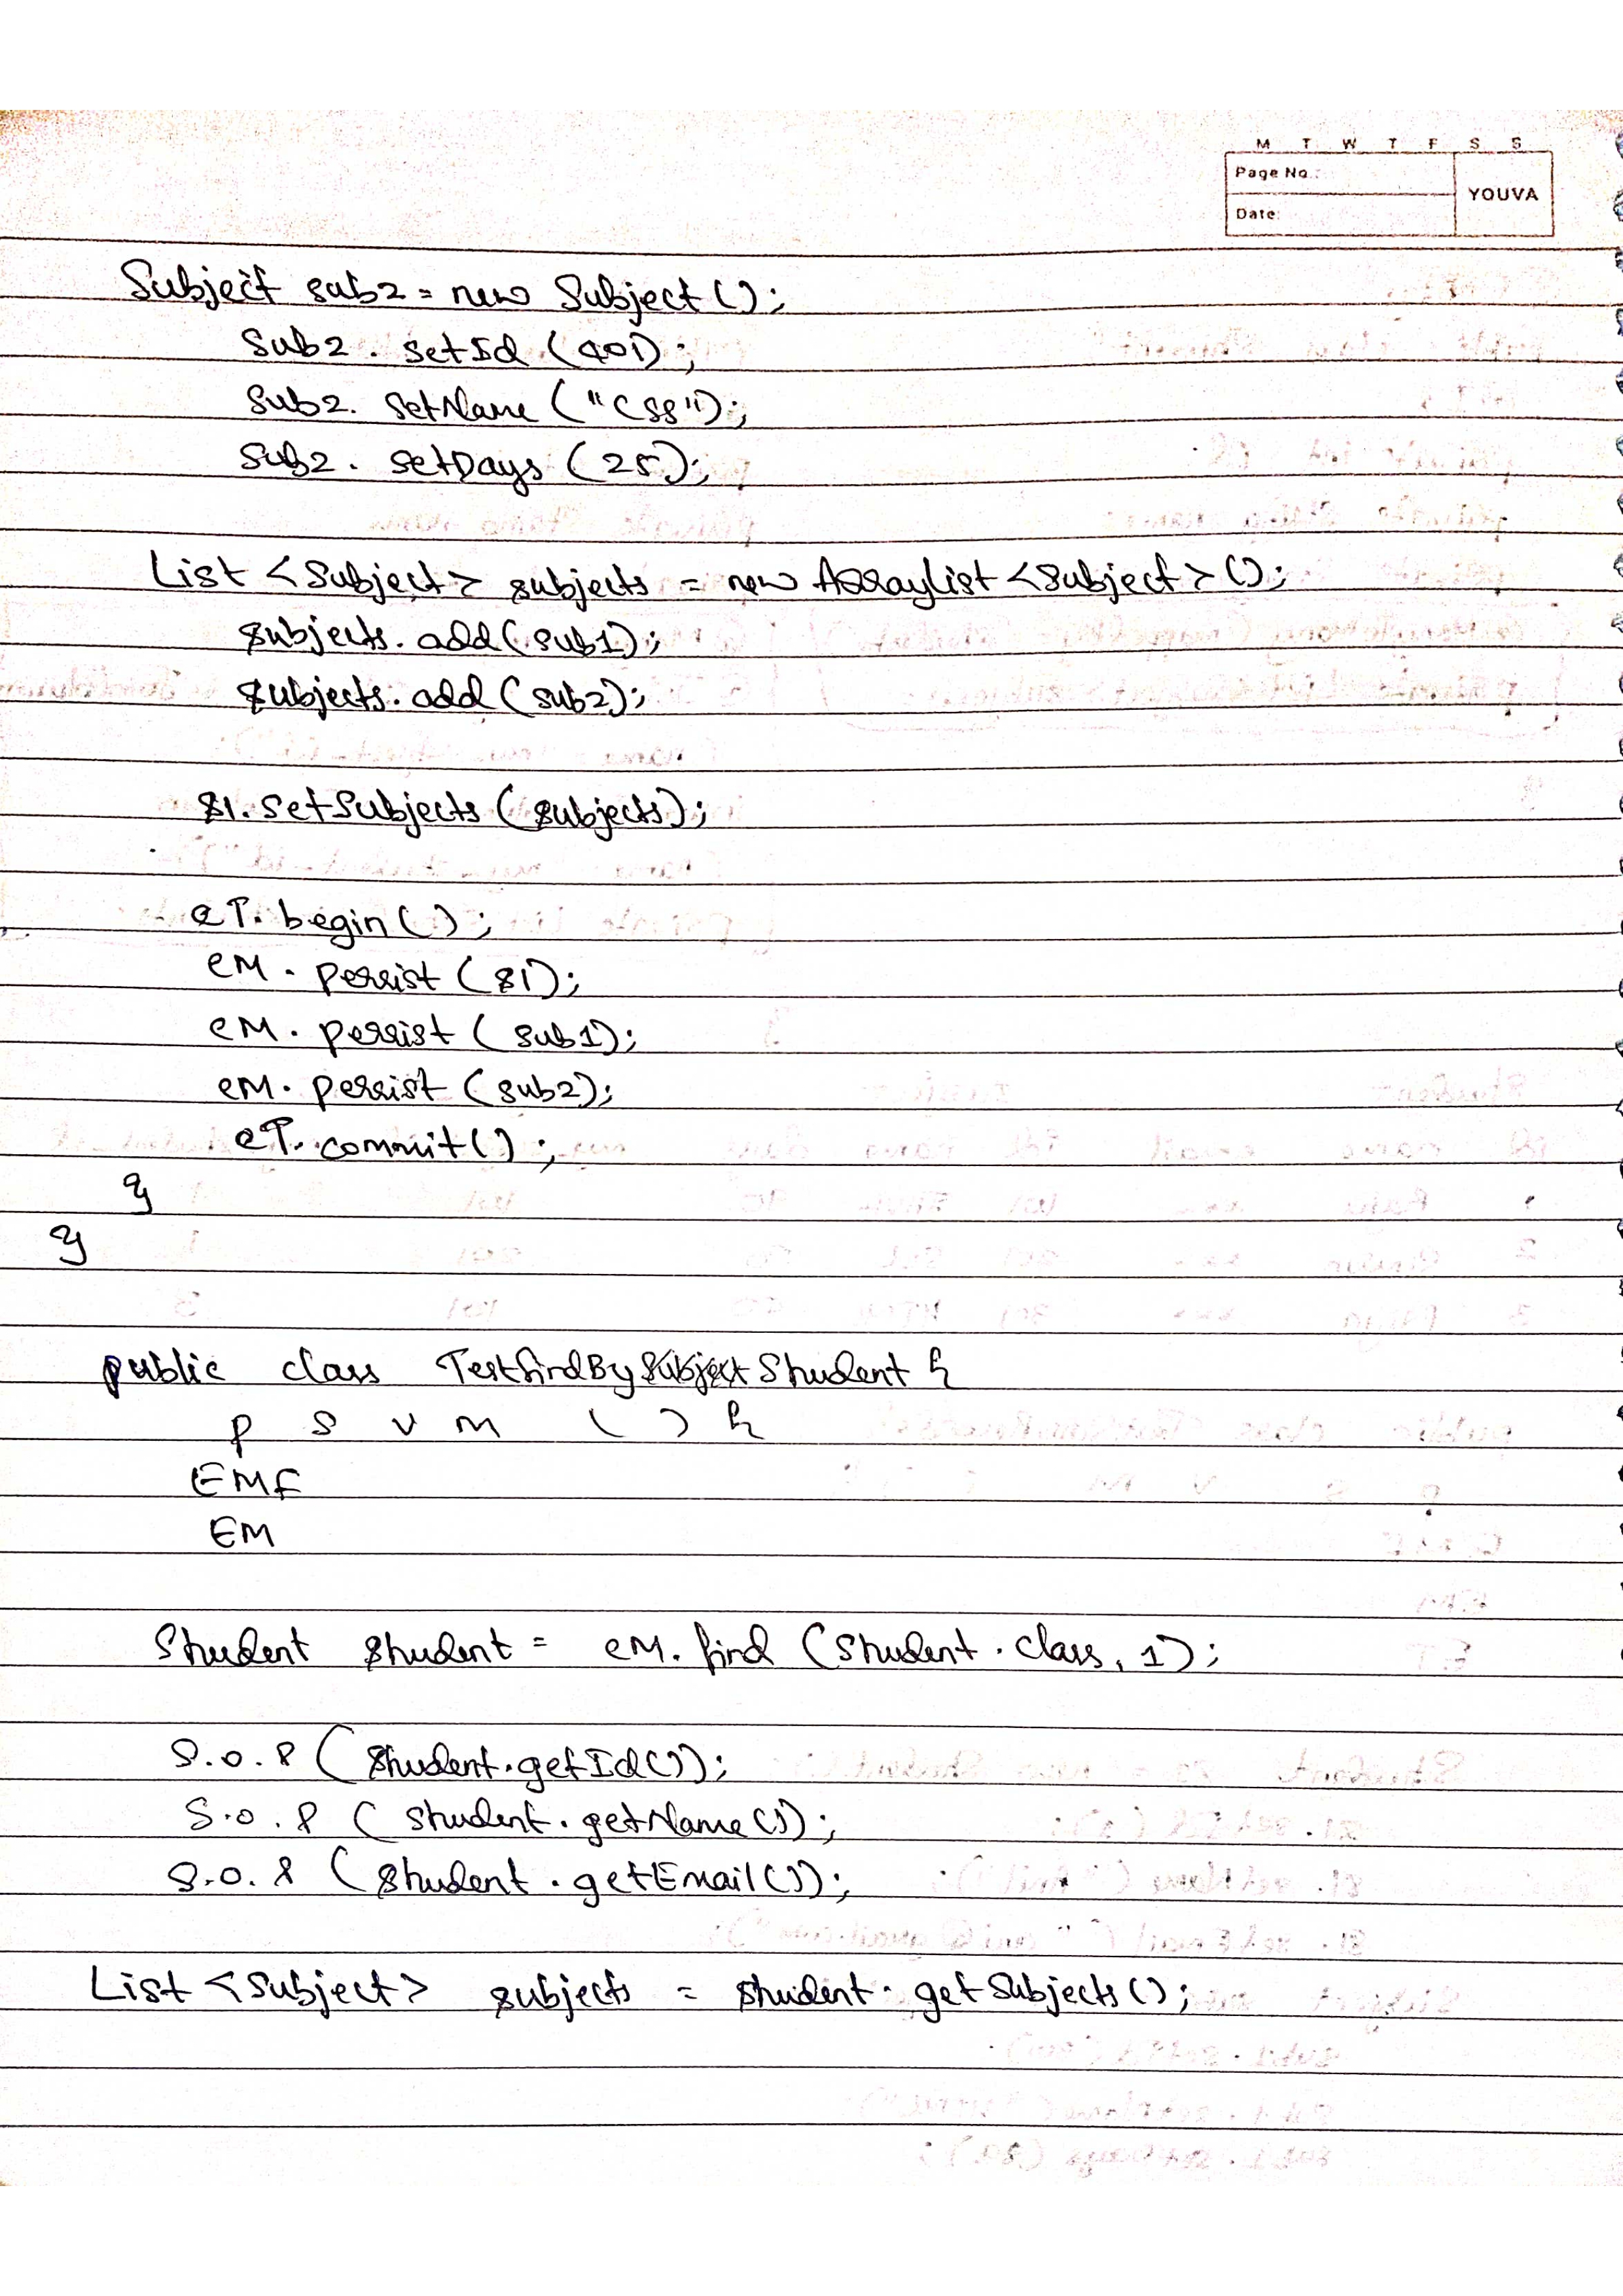 M T W T F S S
Page No.:
YOUVA
Date:
Subject sub2 = new Subject();
sub2. setId (401);
sub2. setName ("CSS");
sub2. setDays (25);
List <Subject> subjects = new ArrayList <Subject> ();
subjects. add (sub1);
subjects. add (sub2);
s1. setSubjects (subjects);
eT. begin ();
eM. persist (s1);
eM. persist (sub1);
eM. persist (sub2);
eT. commit ();
}
}
public class TestfindBy Student {
p s v m ( ) {
EMF
EM
Student student = eM. find (Student. class, 1);
S.o.P (student.getId());
S.o.P (student.getName());
S.o.P (student.getEmail());
List <Subject> subjects = student. getSubjects ();